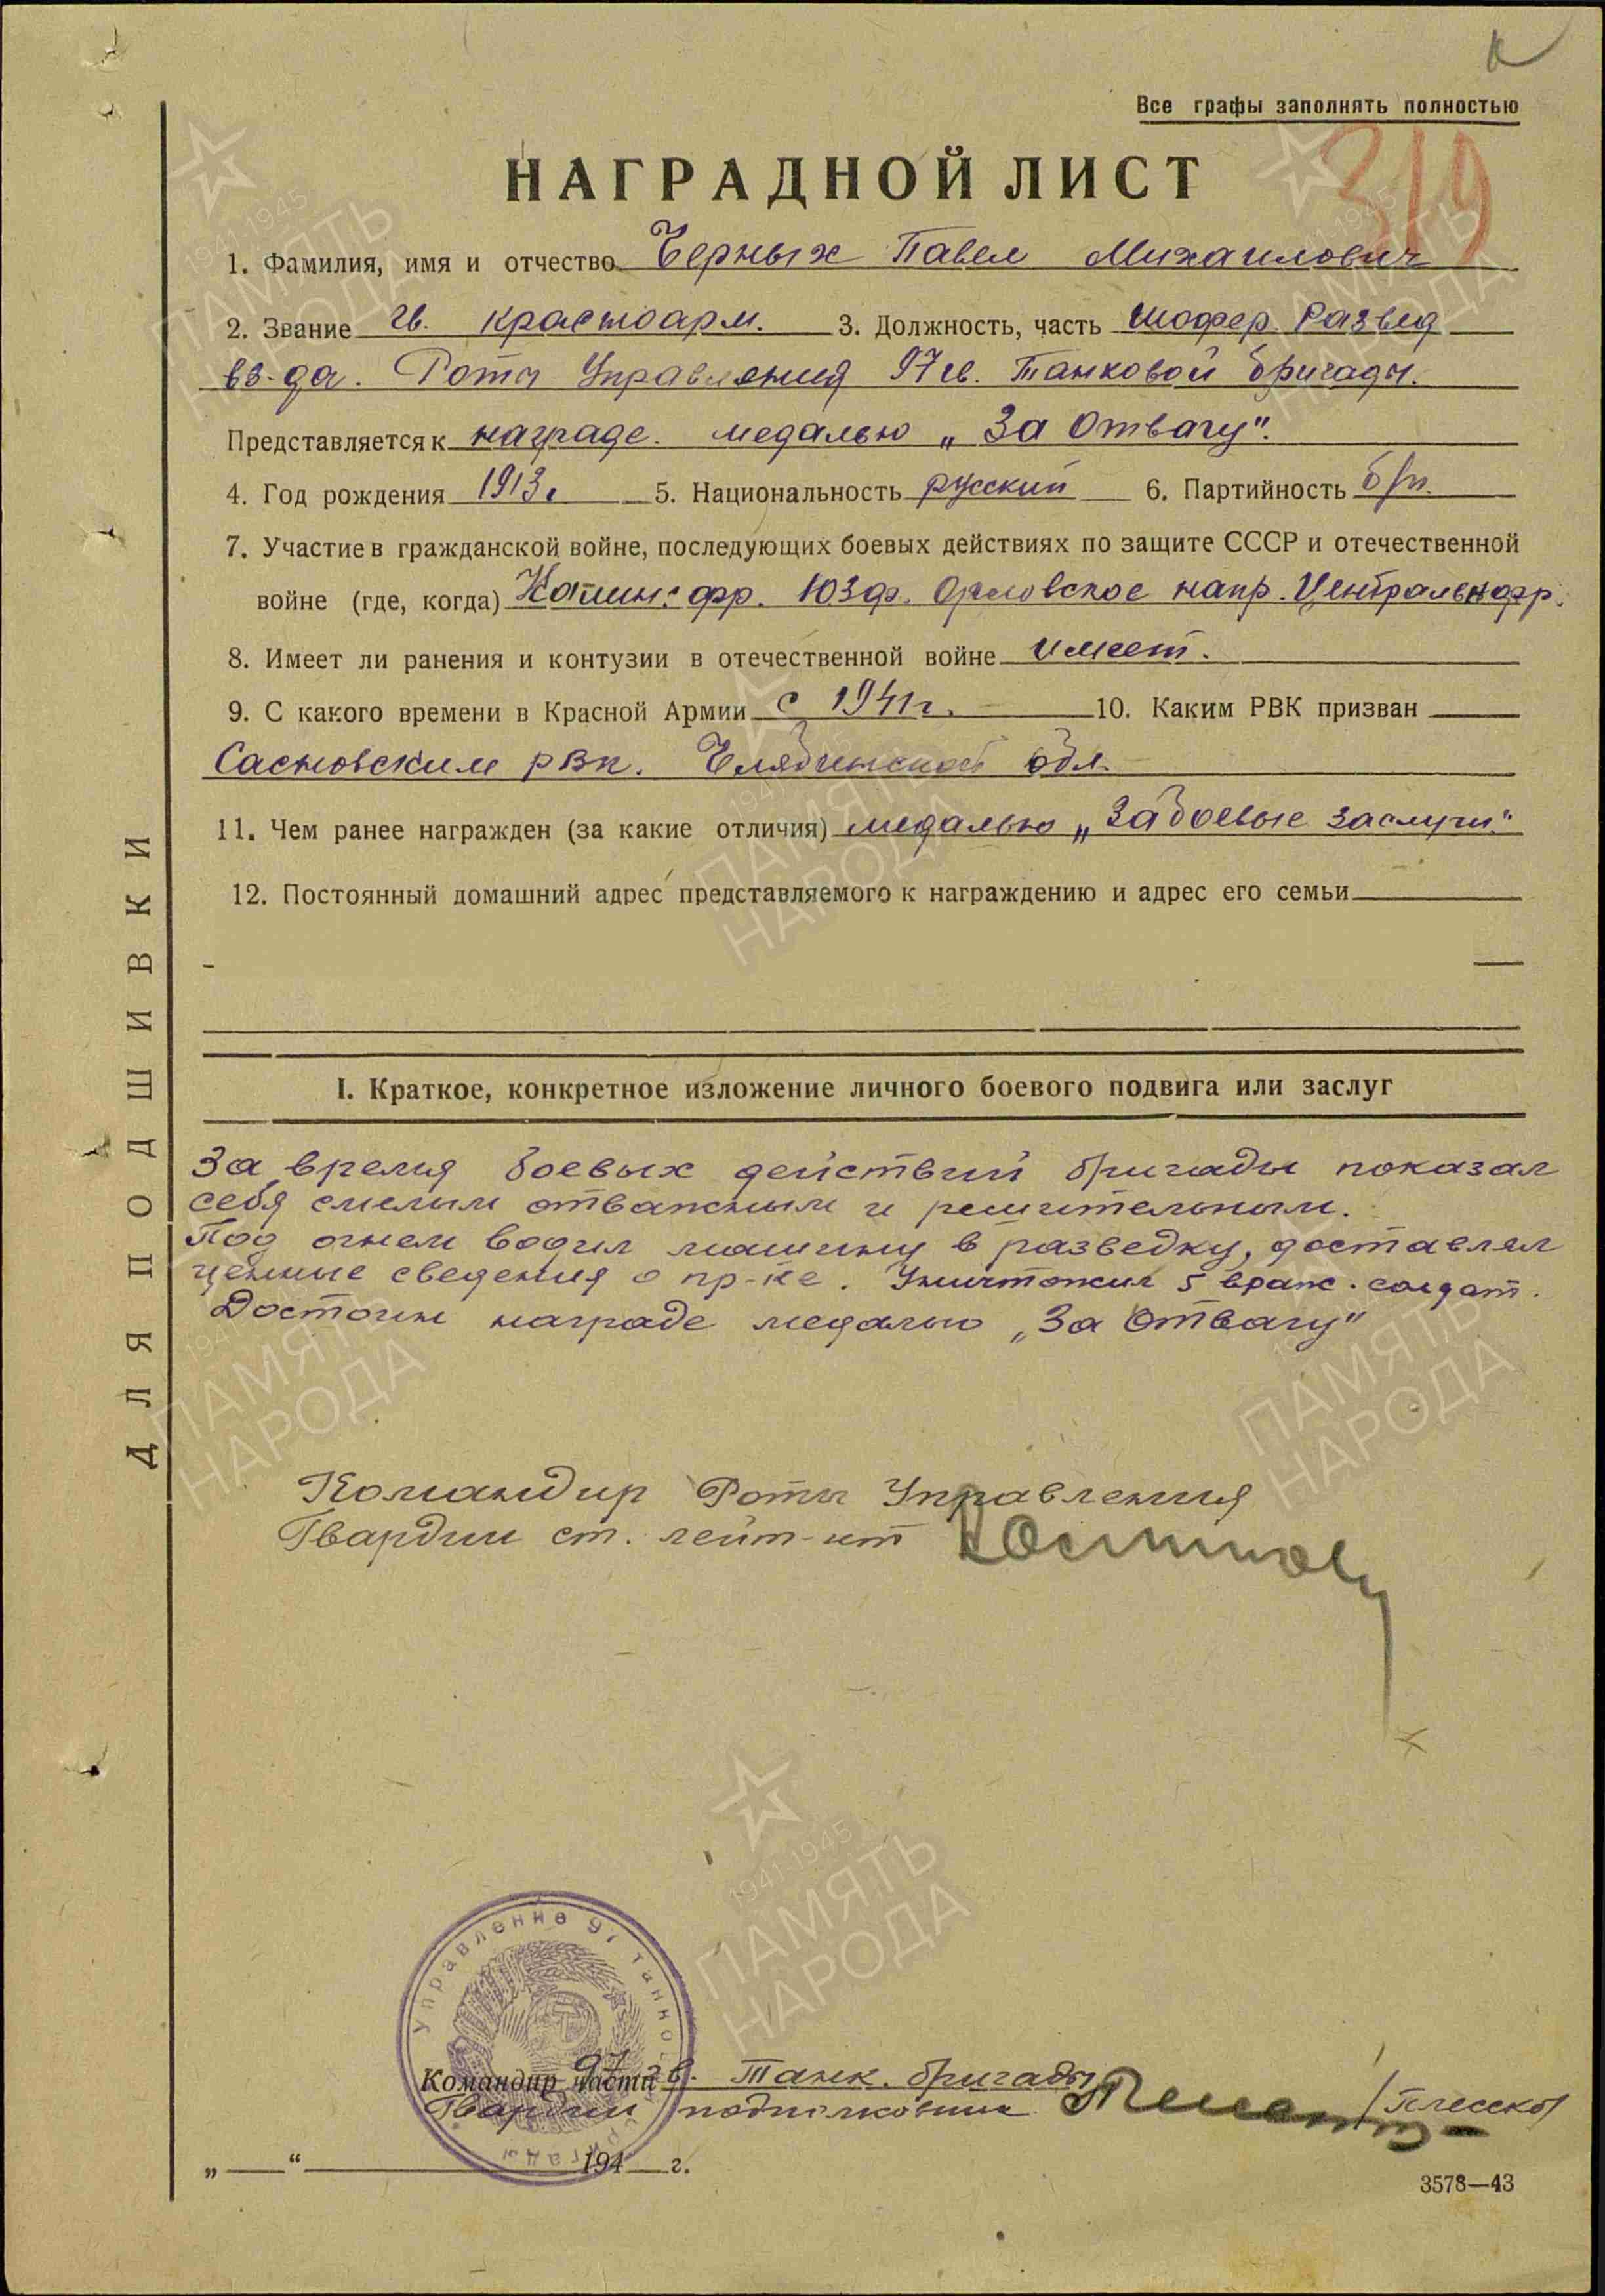 Все графы заполнять полностью
319
НАГРАДНОЙ ЛИСТ
1. Фамилия, имя и отчество Черных Павел Михаилович
2. Звание гв. красноарм. 3. Должность, часть шофер. Развед
вз-да. Роты Управления 97 гв. Танковой бригады.
Представляется к награде. медалью „За Отвагу".
4. Год рождения 1913г 5. Национальность русский 6. Партийность б/п.
7. Участие в гражданской войне, последующих боевых действиях по защите СССР и отечественной
войне (где, когда) Калин. фр. ЮЗф. Орловское напр. Центральн фр.
8. Имеет ли ранения и контузии в отечественной войне имеет.
9. С какого времени в Красной Армии с 1941г. 10. Каким РВК призван
Сасновским рвк. Челябинской обл.
11. Чем ранее награжден (за какие отличия) медалью „За боевые заслуги."
12. Постоянный домашний адрес представляемого к награждению и адрес его семьи
ДЛЯ ПОДШИВКИ
I. Краткое, конкретное изложение личного боевого подвига или заслуг
За время боевых действий бригады показал
себя смелым отважным и решительным.
Под огнем водил машину в разведку, доставлял
ценные сведения о пр-ке. Уничтожил 5 враж. солдат.
Достоин награде медалью „За Отвагу"
Командир Роты Управления
Гвардии ст. лейт-нт
Управление 97 танко бригады
Командир части 97 гв. Танк. бригады
Гвардии подполковник
„ “ 194 г.
3578—43
1941-1945
ПАМЯТЬ
НАРОДА